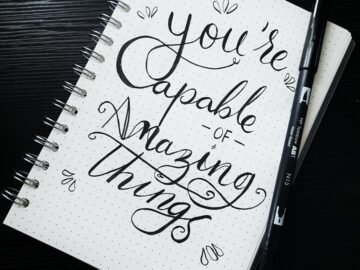 you're
Capable
- OF -
Amazing
Things
ABT
N15